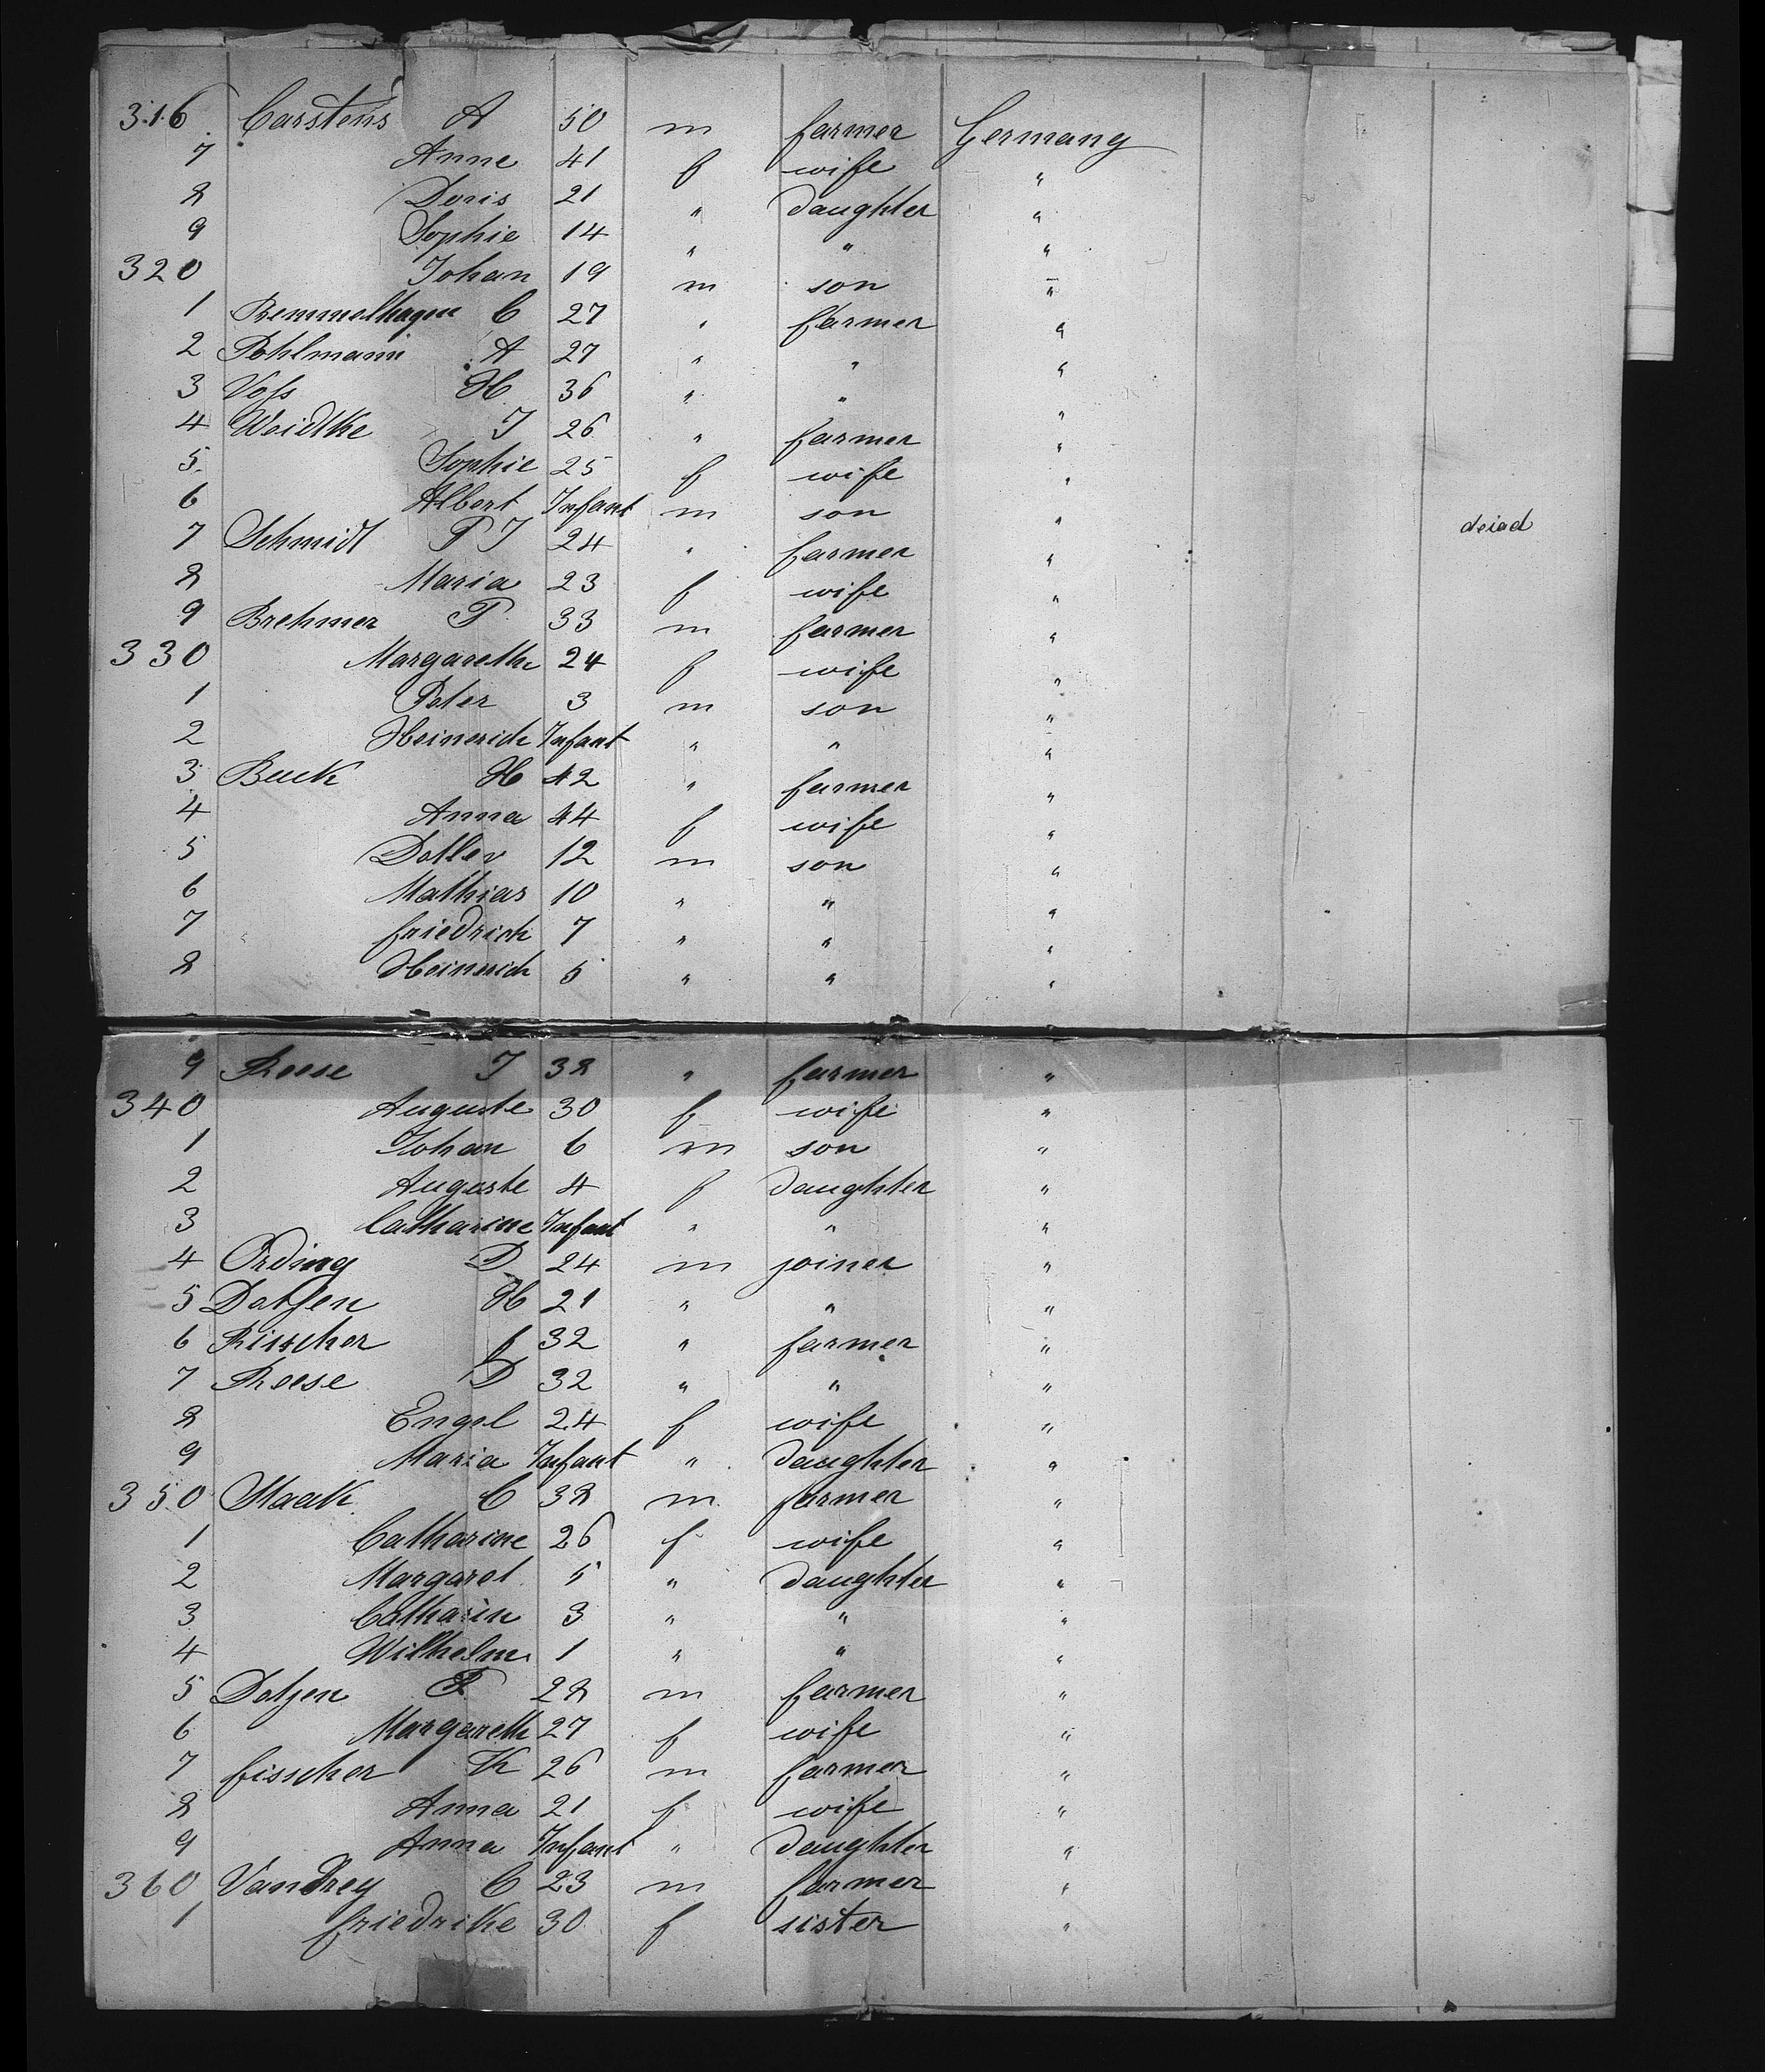 316 Carstens A 50 m farmer Germany
7 Anne 41 f wife "
8 Doris 21 " daughter "
9 Sophie 14 " " "
320 Johan 19 m son "
1 Remmelhagen C 27 " farmer "
2 Pohlmann A 27 " " "
3 Voss H 36 " " "
4 Weidtke J 26 " farmer "
5 Sophie 25 f wife "
6 Albert Infant m son " deied
7 Schmidt P J 24 " farmer "
8 Maria 23 f wife "
9 Brehmer P 33 m farmer "
330 Margarethe 24 f wife "
1 Peter 3 m son "
2 Heinerich Infant " " "
3 Buck H 42 " farmer "
4 Anna 44 f wife "
5 Detlev 12 m son "
6 Mathias 10 " " "
7 friedrich 7 " " "
8 Heinerich 5 " " "
9 Reese J 38 " farmer "
340 Auguste 30 f wife "
1 Johan 6 m son "
2 Auguste 4 f daughter "
3 Catharine Infant " " "
4 Ording D 24 m joiner "
5 Datjen H 21 " " "
6 Rischer f 32 " farmer "
7 Reese D 32 " " "
8 Engel 24 f wife "
9 Maria Infant " daughter "
350 Maak C 38 m farmer "
1 Catharine 26 f wife "
2 Margaret 5 " daughter "
3 Catharin 3 " " "
4 Wilhelm 1 " " "
5 Dotjen P 28 m farmer "
6 Margareth 27 f wife "
7 fisscher K 26 m farmer "
8 Anna 21 f wife "
9 Anna Infant " daughter "
360 Vandrey C 23 m farmer "
1 friedrike 30 f sister "